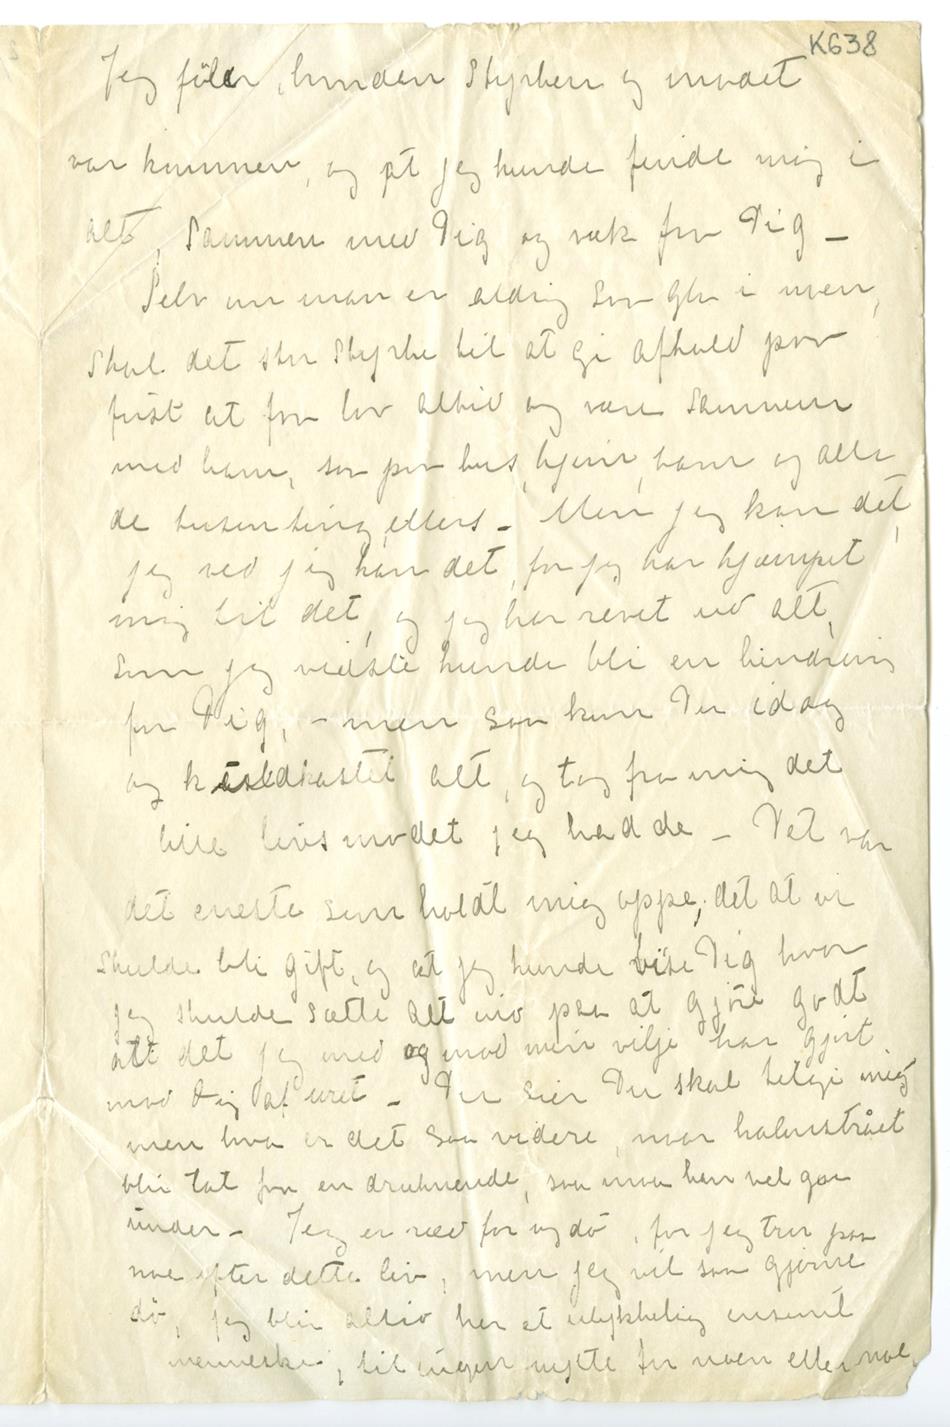 K638
Jeg føler, hvordan Styrken og modet
var kommen, og at jeg kunde finde mig i
alt, Sammen med Dig og væk fra Dig –
Selv om man er aldrig saa gla i
Skal det stor Styrke til at gi afkald paa
først at faa lov altid og være Sammen
med ham, saa paa hus, hjem, barn og alle
de tusen ting, ellers – Men jeg kan det,
jeg ved jeg kan det, for jeg har kjæmpet
mig til det, og jeg har revet ud alt,
som jeg vidste kunde bli en hindring
for Dig, – men saa kom Du idag
og kuldkastet alt, og tog fra mig det
lille livsmodet jeg hadde – Det var
det eneste som holdt mig oppe, det at vi
skulde bli gift, og at jeg kunde vise Dig hvor
jeg skulde sætte alt ind paa at gjøre godt
alt det jeg med og mod min vilje har gjort
mod Dig af uret – Du sier Du skal tilgi mig
men hva er det saa videre, naar halmstrået
blir tat fra en druknende, saa maa han vel gaa
under – Jeg er ræd for og dø, for jeg tror paa
noe efter dette liv, men jeg vil saa gjerne
dø, jeg blir altid her et ulykkelig ensomt
menneske, til ingen nytte for noen eller noe,